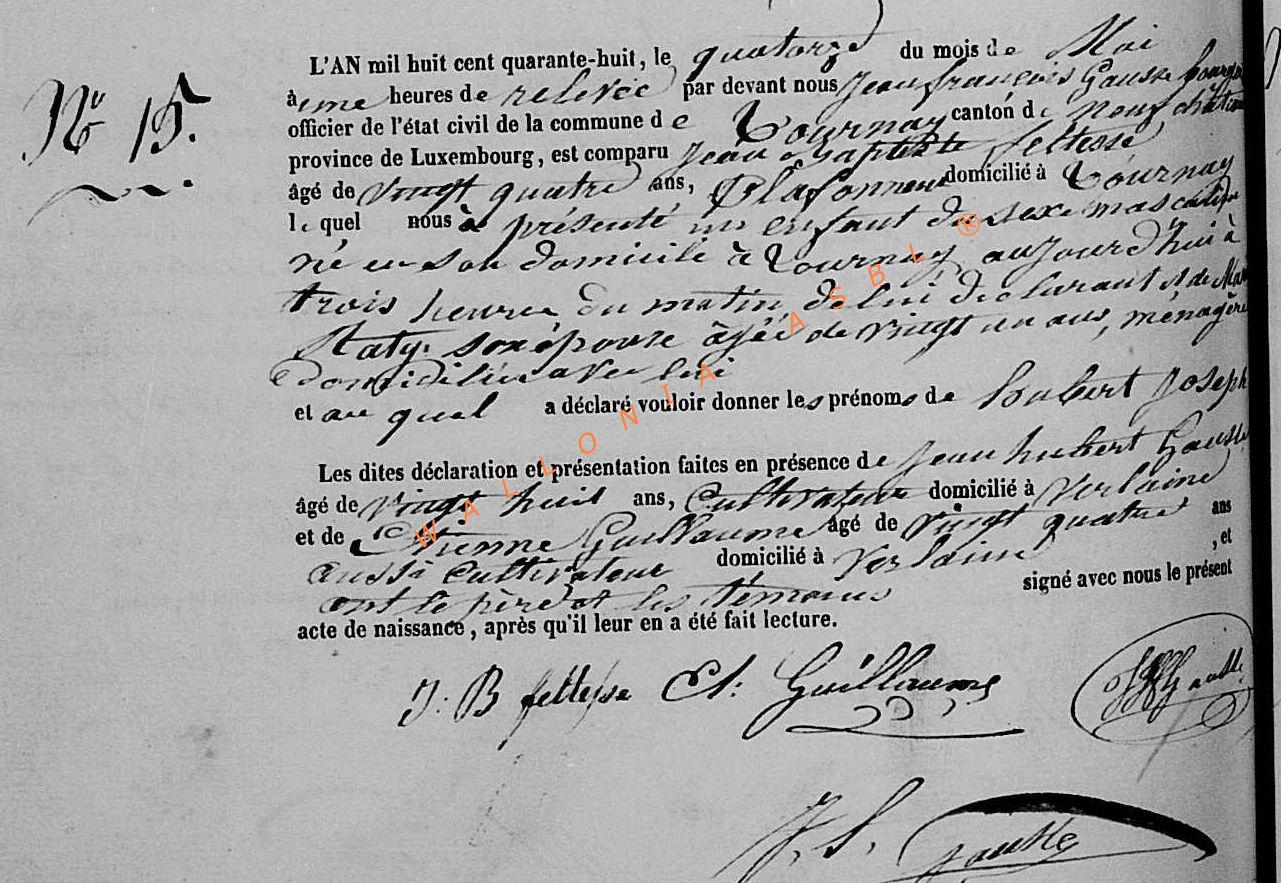 N° 15.
L'AN mil huit cent quarante-huit, le quatorze du mois de Mai
à une heures de relevée par devant nous Jean françois Gausse
officier de l'état civil de la commune de Tournay canton de neufchâteau
province de Luxembourg, est comparu Jean Baptiste fettesse
âgé de vingt quatre ans, Plafonneur domicilié à Tournay
lequel nous a présenté un enfant du sexe masculin
né en son domicile à Tournay aujourd'hui à
trois heures du matin de lui déclarant et de
Katy. son épouse âgée de vingt un ans, ménagère
domiciliée avec lui
et au quel a déclaré vouloir donner les prénoms de hubert Joseph
Les dites déclaration et présentation faites en présence de Jean hubert Gausse
âgé de vingt huit ans, Cultivateur domicilié à Verlaine
et de Etienne Guillaume âgé de vingt quatre ans
aussi cultivateur domicilié à Verlaine , et
ont le père et les témoins signé avec nous le présent
acte de naissance, après qu'il leur en a été fait lecture.
J: B fettesse Et: Guillaume JHGausse
J. f. Gausse
WALLONIA ASBL ®